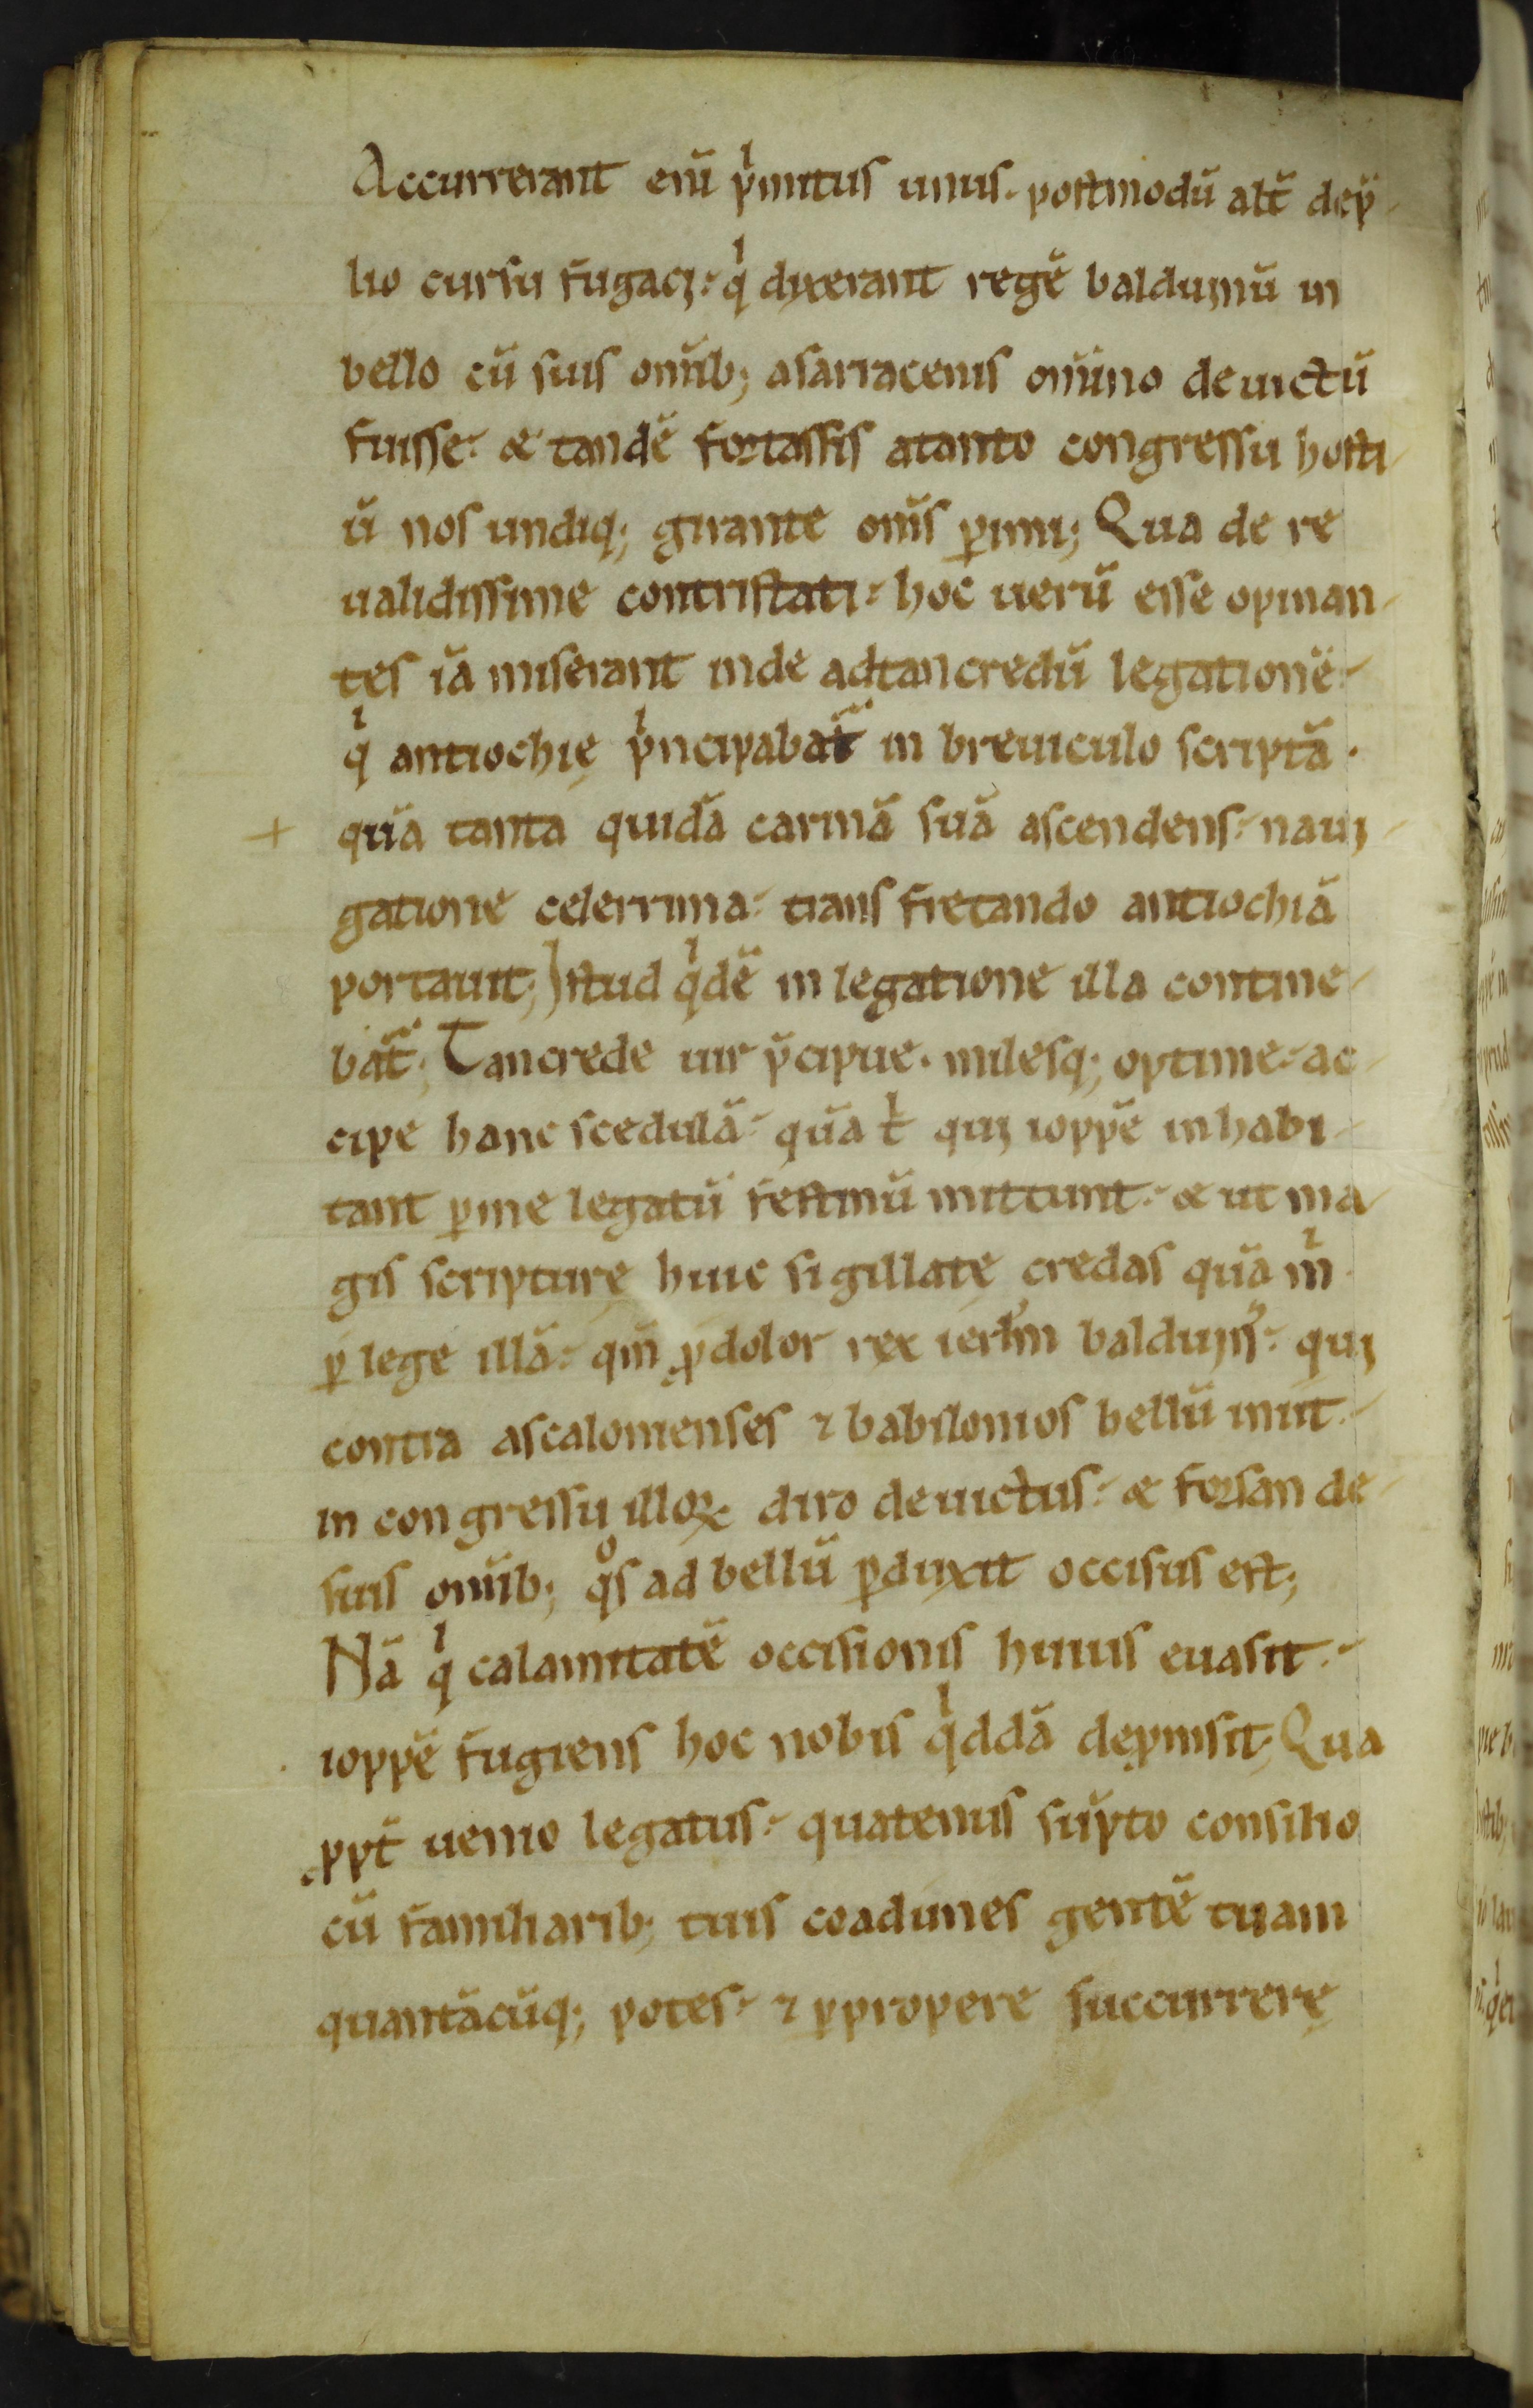 Accurrerant enī pͥmitus unus. postmodū alt̄ dep̄-
lio cursu fugaci: qͥ dixerant regē balduinū in
bello cū suis om̄ib; asarracenis om̄ino deuictū
fuisse: & tandē fortassis atanto congressu hosti-
ū nos undiq; girante om̄s ꝑimi; Qua de re
ualidissime contristati: hoc uerū esse opinan-
tes iā miserant inde adtancredū legationē:
qͥ antiochię pͥncipabat̄ in breuiculo scriptā.
+ quā tanta quidā carinā suā ascendens: naui-
gatione celerrima: transfretando antiochiā
portauit; Istud qͥdē in legatione illa contine-
bat̄; Tancrede uir p̄cipue. milesq; optime: ac-
cipe hanc scedulā: quā tͥ qui ioppē inhabi-
tant ꝑme legatū festinū mittunt: & ut ma-
gis scripturę huic sigillatę credas quā mͥ
ꝑlege illā: qm̄ ꝓdolor rex ierl̄m balduinꝰ: qui
contra ascalonienses ⁊ babilonios bellū iniit:
in congressu illoꝝ diro deuictus: & forsan de-
suis om̄ib; qͦs ad bellū ꝑduxit occisus est;
Nā qͥ calamitatē occisionis huius euasit:
ioppē fugiens hoc nobis qͥddā depmisit; Qua
ꝓpt̄ uenio legatus: quatenus sūpto consilio
cū familiarib; tuis coadunes gentē tuam
quantācūq; potes: ⁊ ꝑpropere succurrerę